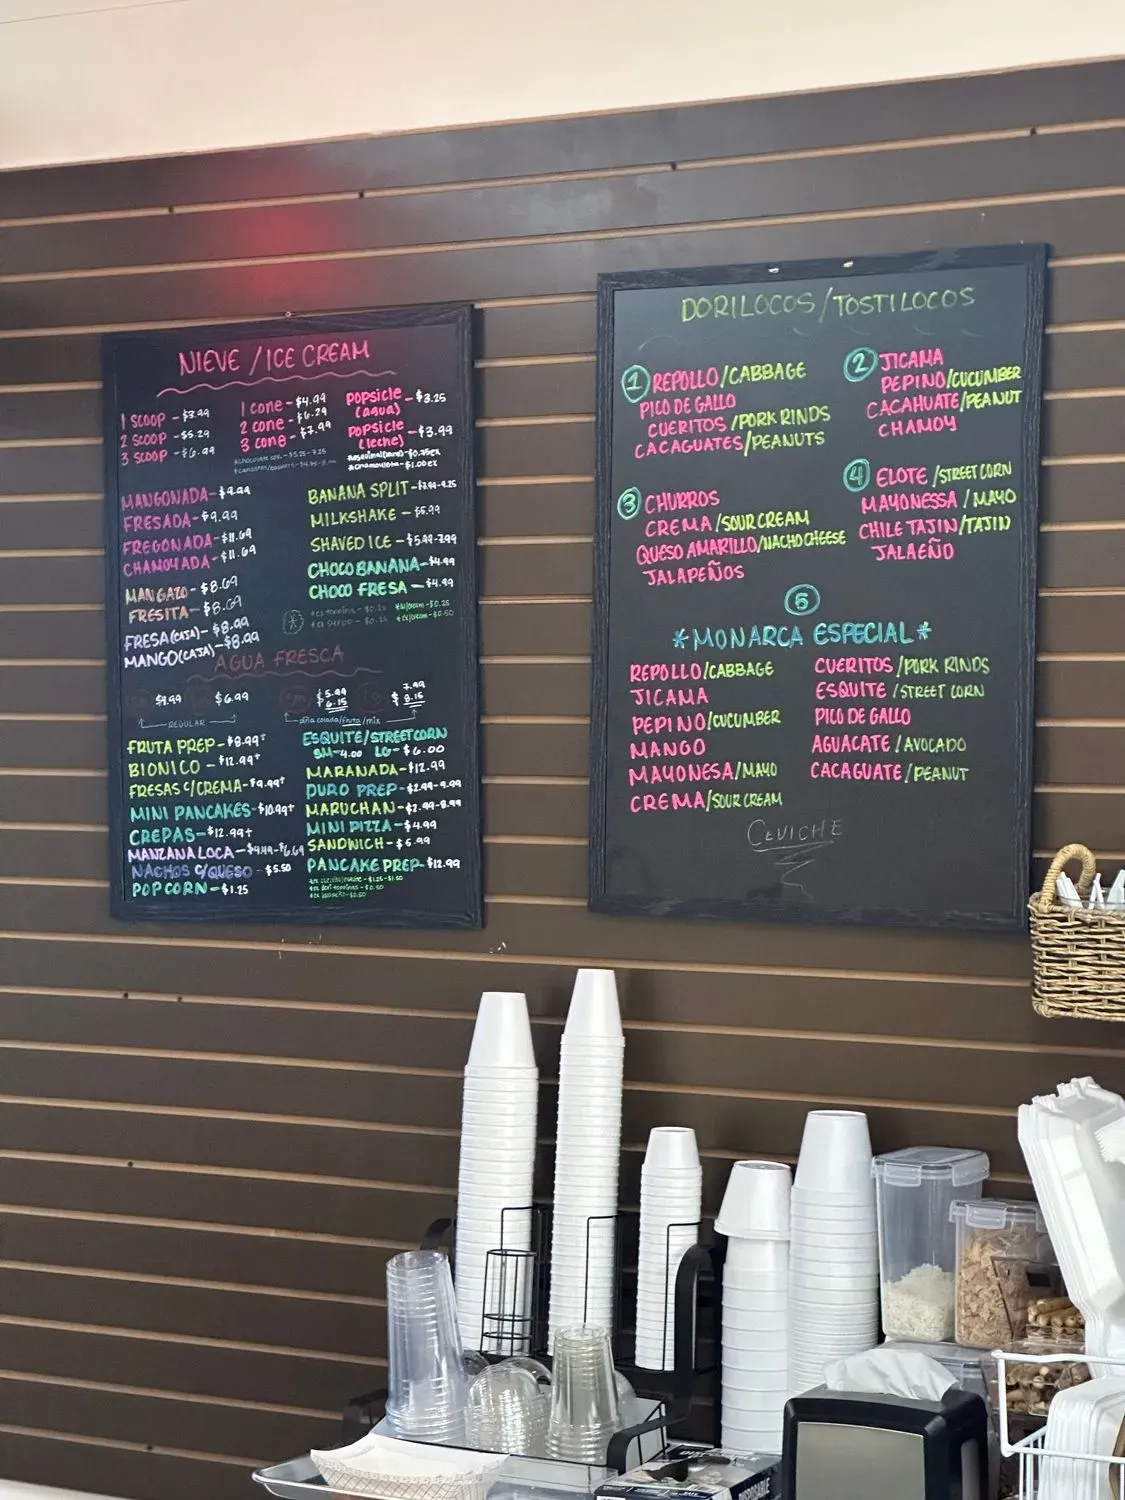 NIEVE / ICE CREAM
1 SCOOP - $3.99
2 SCOOP - $5.29
3 SCOOP - $6.99
1 cone - $4.99
2 cone - $6.29
3 cone - $7.99
POPSICLE (agua) - $3.25
POPSICLE (leche) - $3.99
MANGONADA - $9.99
FRESADA - $9.99
FREGONADA - $11.69
CHAMOYADA - $11.69
MANGAZO - $8.69
FRESITA - $8.69
FRESA (CAJA) - $8.99
MANGO (CAJA) - $8.99
BANANA SPLIT - $7.99-9.25
MILKSHAKE - $5.99
SHAVED ICE - $5.99-7.99
CHOCO BANANA - $4.99
CHOCO FRESA - $4.99
AGUA FRESCA
$4.99 $6.99
REGULAR
$5.99
6.15
7.99
$8.15
piña colada/fruta/mix
FRUTA PREP - $8.99+
BIONICO - $12.99+
FRESAS C/CREMA - $9.99+
MINI PANCAKES - $10.99+
CREPAS - $12.99+
MANZANA LOCA - $4.49-$6.69
NACHOS C/QUESO - $5.50
POPCORN - $1.25
ESQUITE/STREETCORN
SM - 4.00 LG - $6.00
MARANADA - $12.99
DURO PREP - $2.99-9.99
MARUCHAN - $2.99-8.99
MINI PIZZA - $4.99
SANDWICH - $5.99
PANCAKE PREP - $12.99
DORILOCOS/TOSTILOCOS
1 REPOLLO/CABBAGE
PICO DE GALLO
CUERITOS/PORK RINDS
CACAGUATES/PEANUTS
2 JICAMA
PEPINO/CUCUMBER
CACAHUATE/PEANUT
CHAMOY
3 CHURROS
CREMA/SOUR CREAM
QUESO AMARILLO/NACHO CHEESE
JALAPEÑOS
4 ELOTE/STREET CORN
MAYONESSA/MAYO
CHILE TAJIN/TAJIN
JALAEÑO
5
*MONARCA ESPECIAL*
REPOLLO/CABBAGE
JICAMA
PEPINO/CUCUMBER
MANGO
MAYONESA/MAYO
CREMA/SOUR CREAM
CUERITOS/PORK RINDS
ESQUITE/STREET CORN
PICO DE GALLO
AGUACATE/AVOCADO
CACAGUATE/PEANUT
CEVICHE